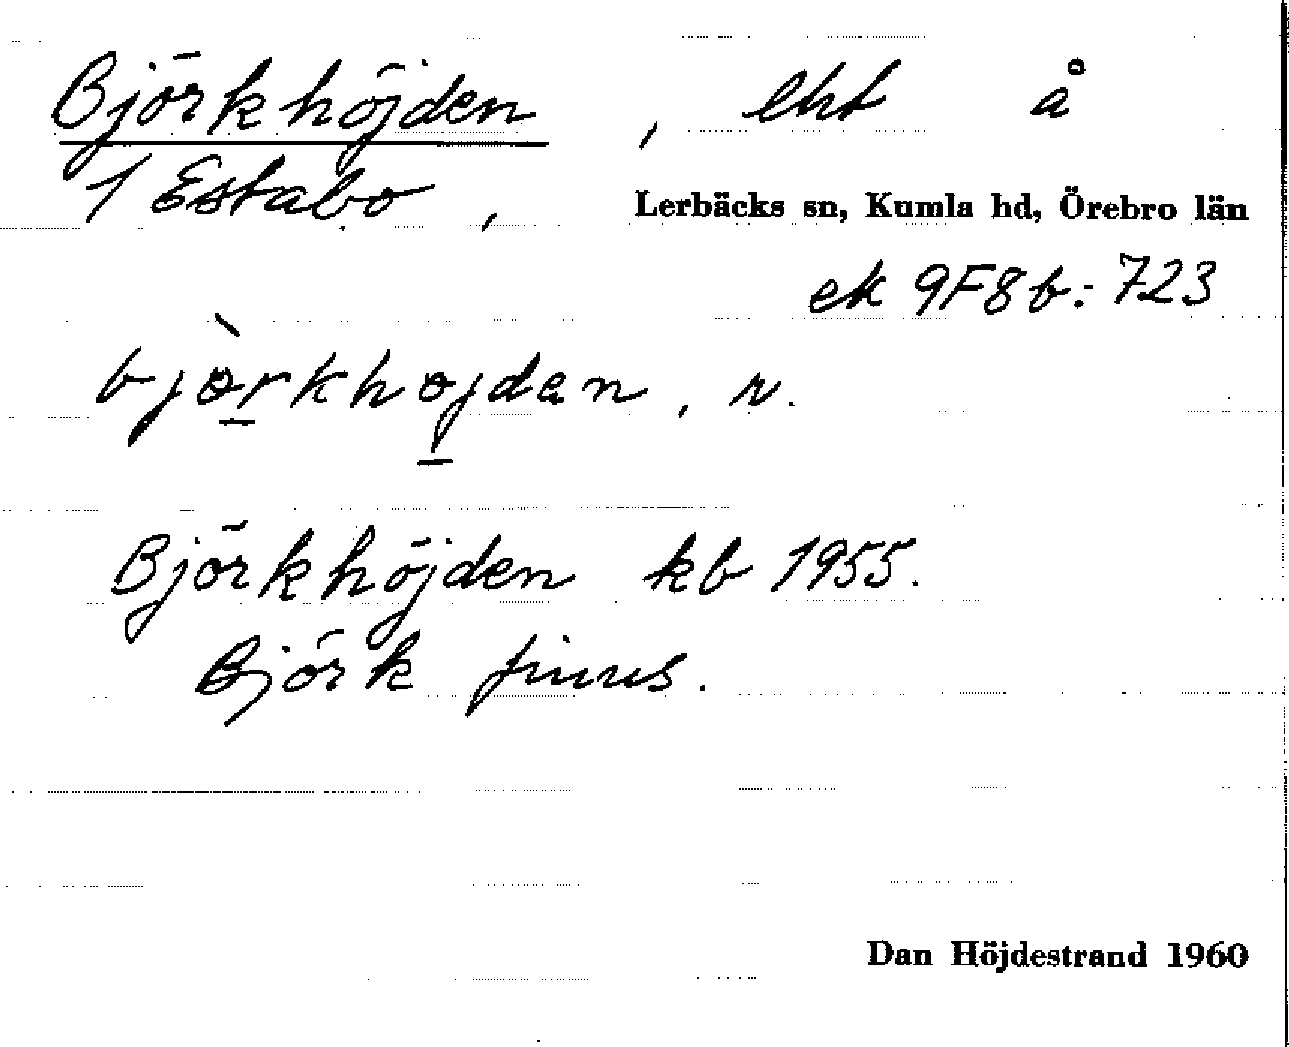 Björkhöjden, lht å
1 Estabo, Lerbäcks sn, Kumla hd, Örebro län
ek 9F8b: 723
bjò̱rkho̱jdan, r.
Björkhöjden kb 1955.
Björk finns.
Dan Höjdestrand 1960